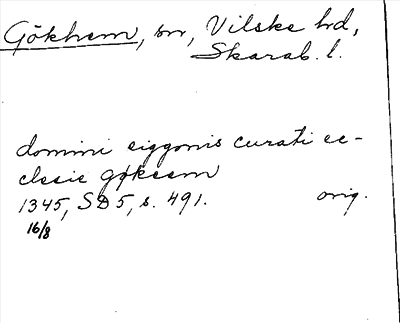 Gökhem, sn, Vilske hd,
Skarab. l.
domini siggonis curati ec-
clesie gøkeem
1345, SD 5, s. 491. orig.
16/8